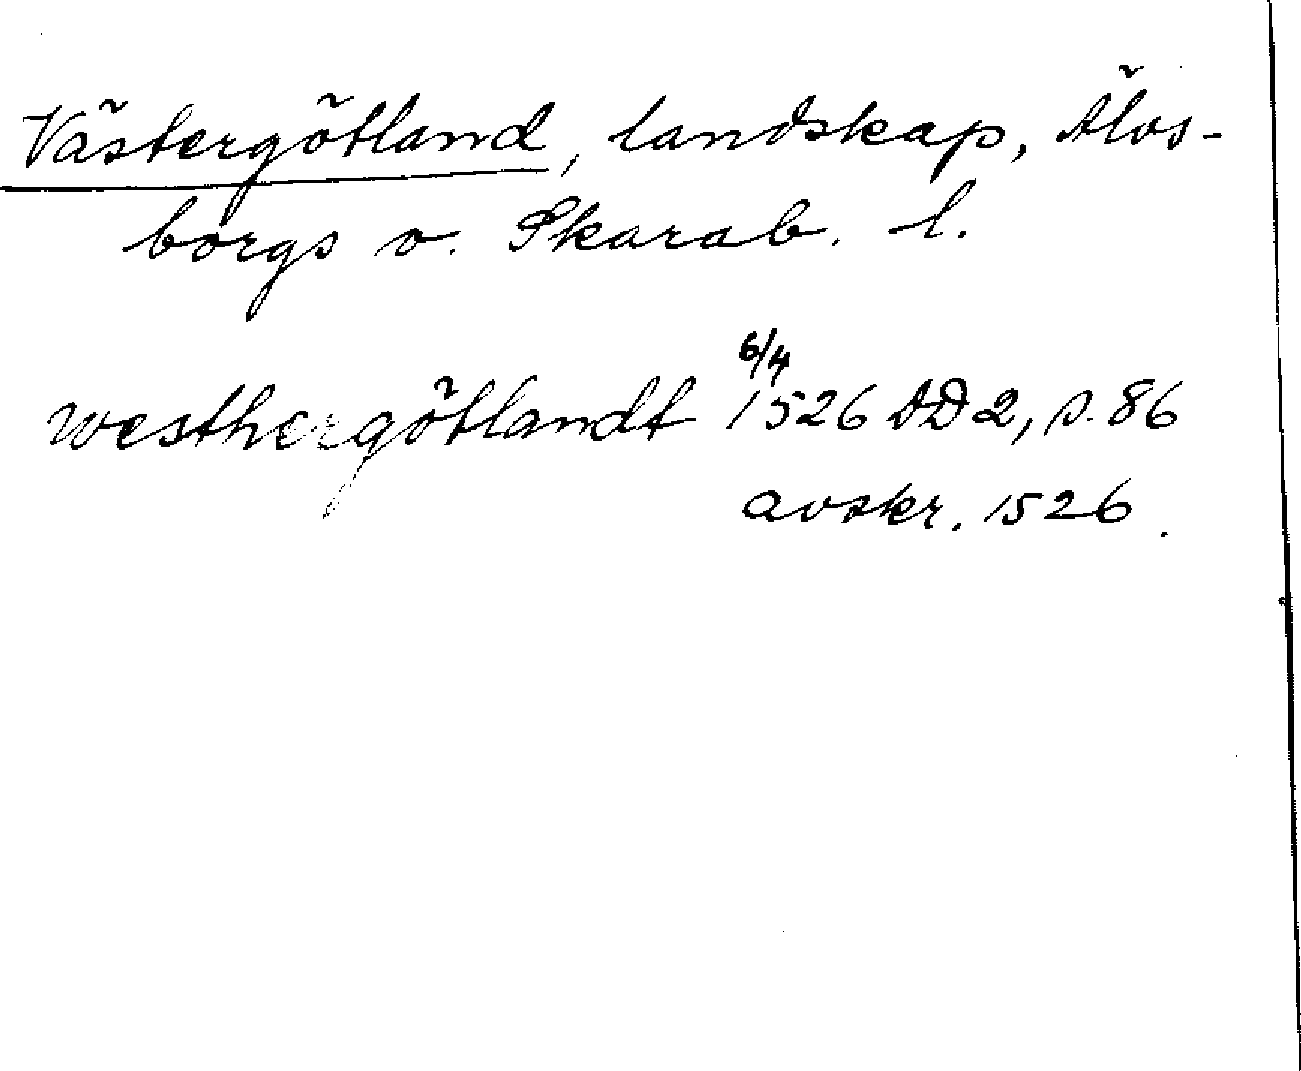 Västergötland, landskap, Älvs-
borgs o. Skarab. l.
westhergötlandt 6/4 1526 DD 2, s. 86
avskr. 1526.